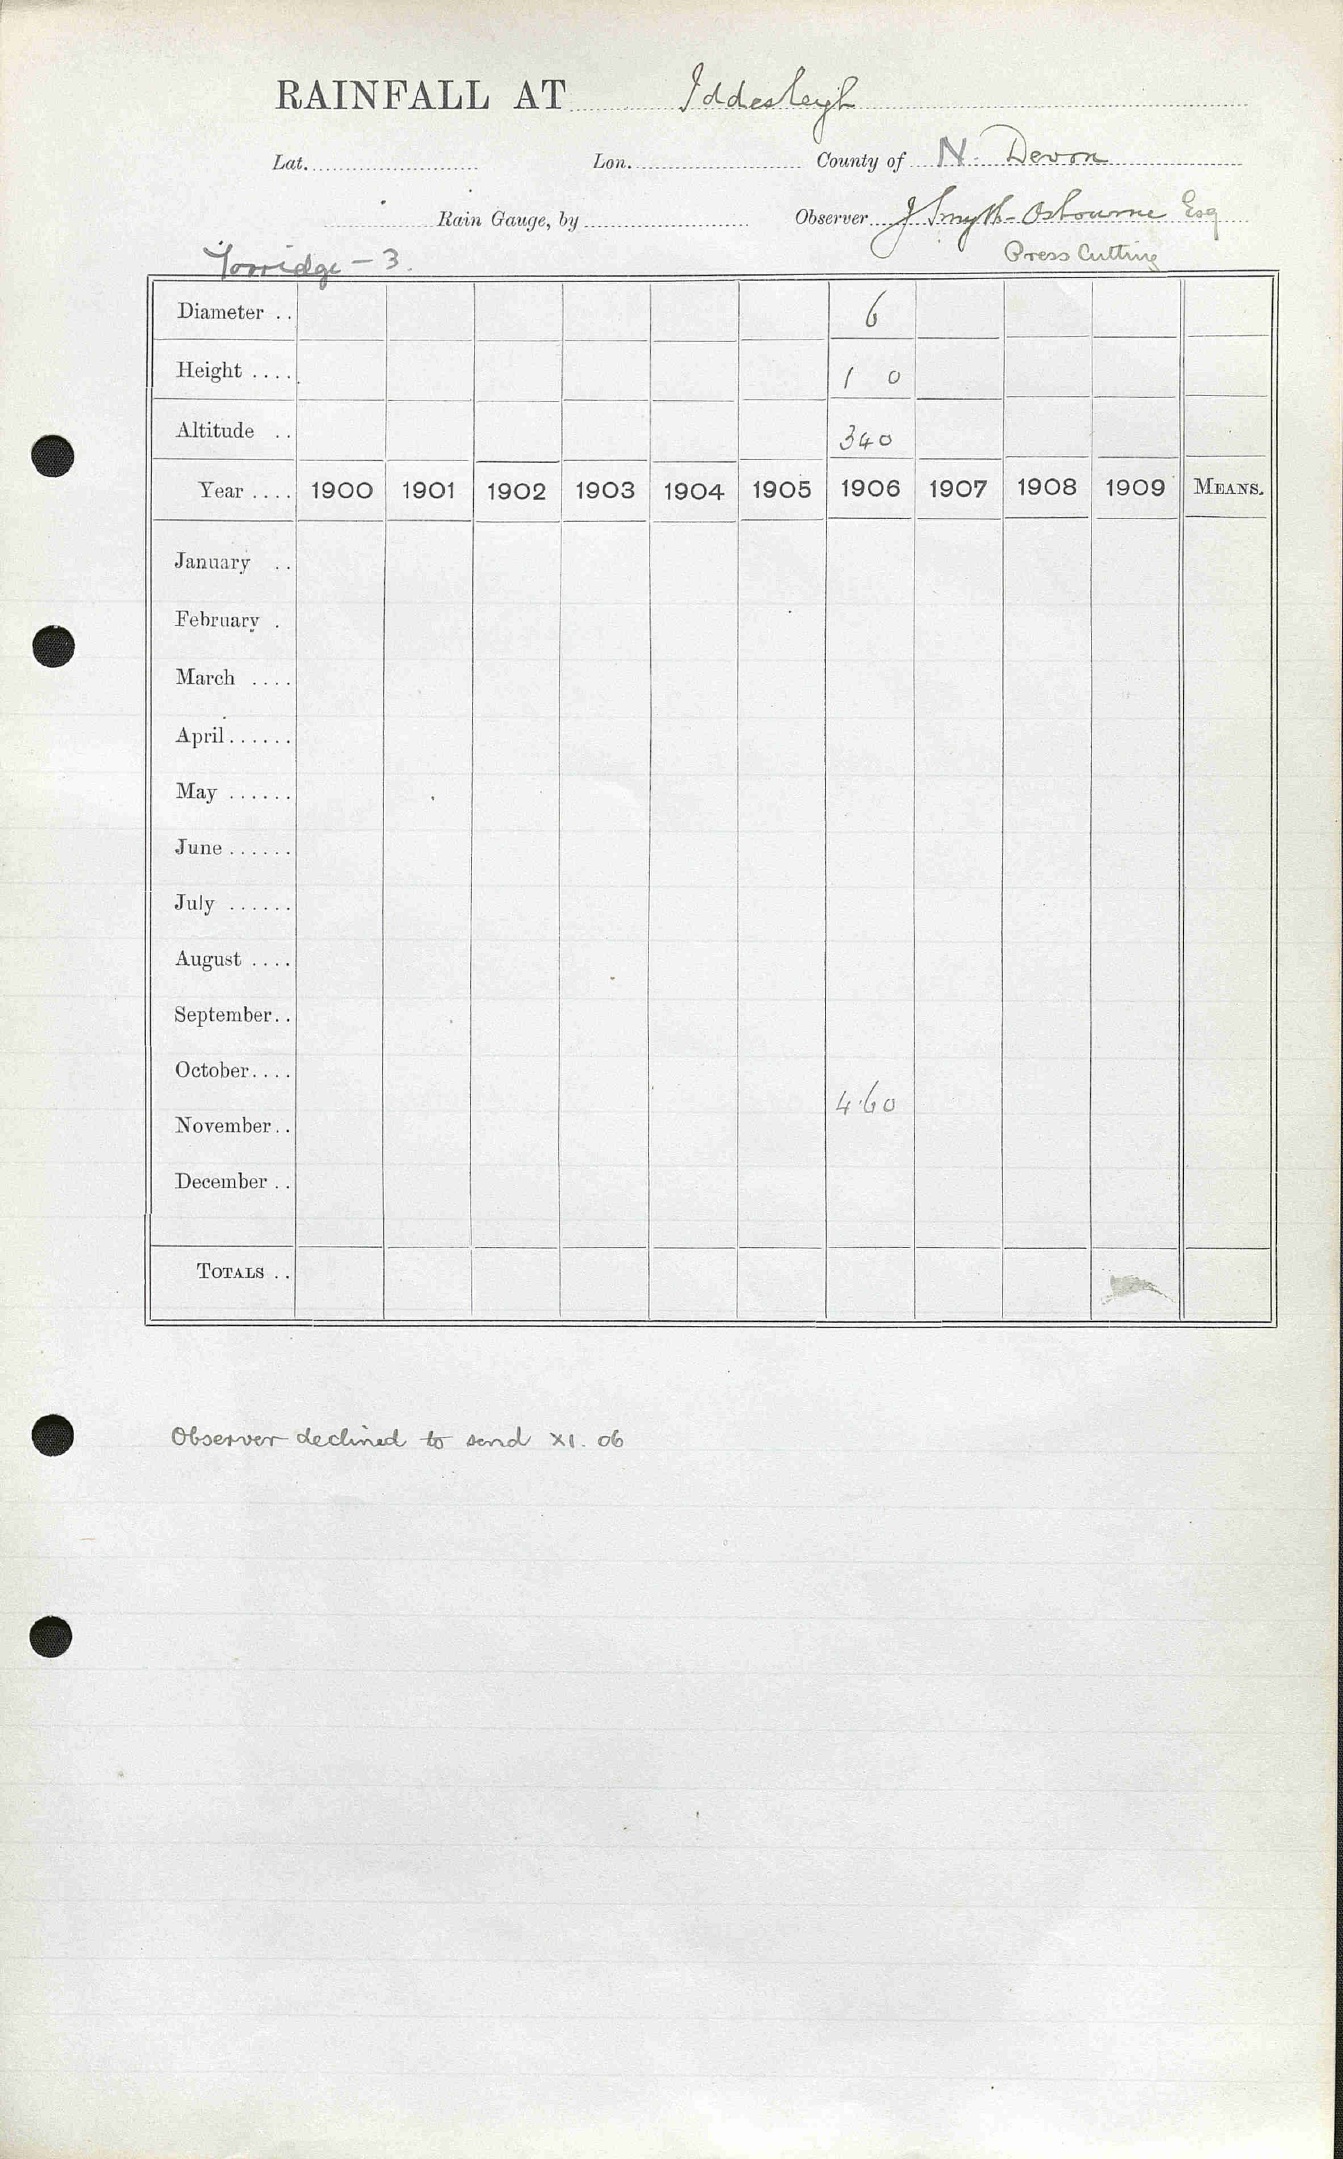 RAINFALL AT Iddesleigh
Lat. Lon. County of N. Devon
Rain Gauge, by Observer J Smyth-Osbourne Esq
Torridge - 3. Press Cutting
Diameter .. 6
Height .... 1 0
Altitude .. 340
Year .... 1900 1901 1902 1903 1904 1905 1906 1907 1908 1909 MEANS.
January ..
February .
March ....
April......
May ......
June ......
July ......
August ....
September..
October....
4.60
November..
December ..
TOTALS ..
Observer declined to send XI. 06